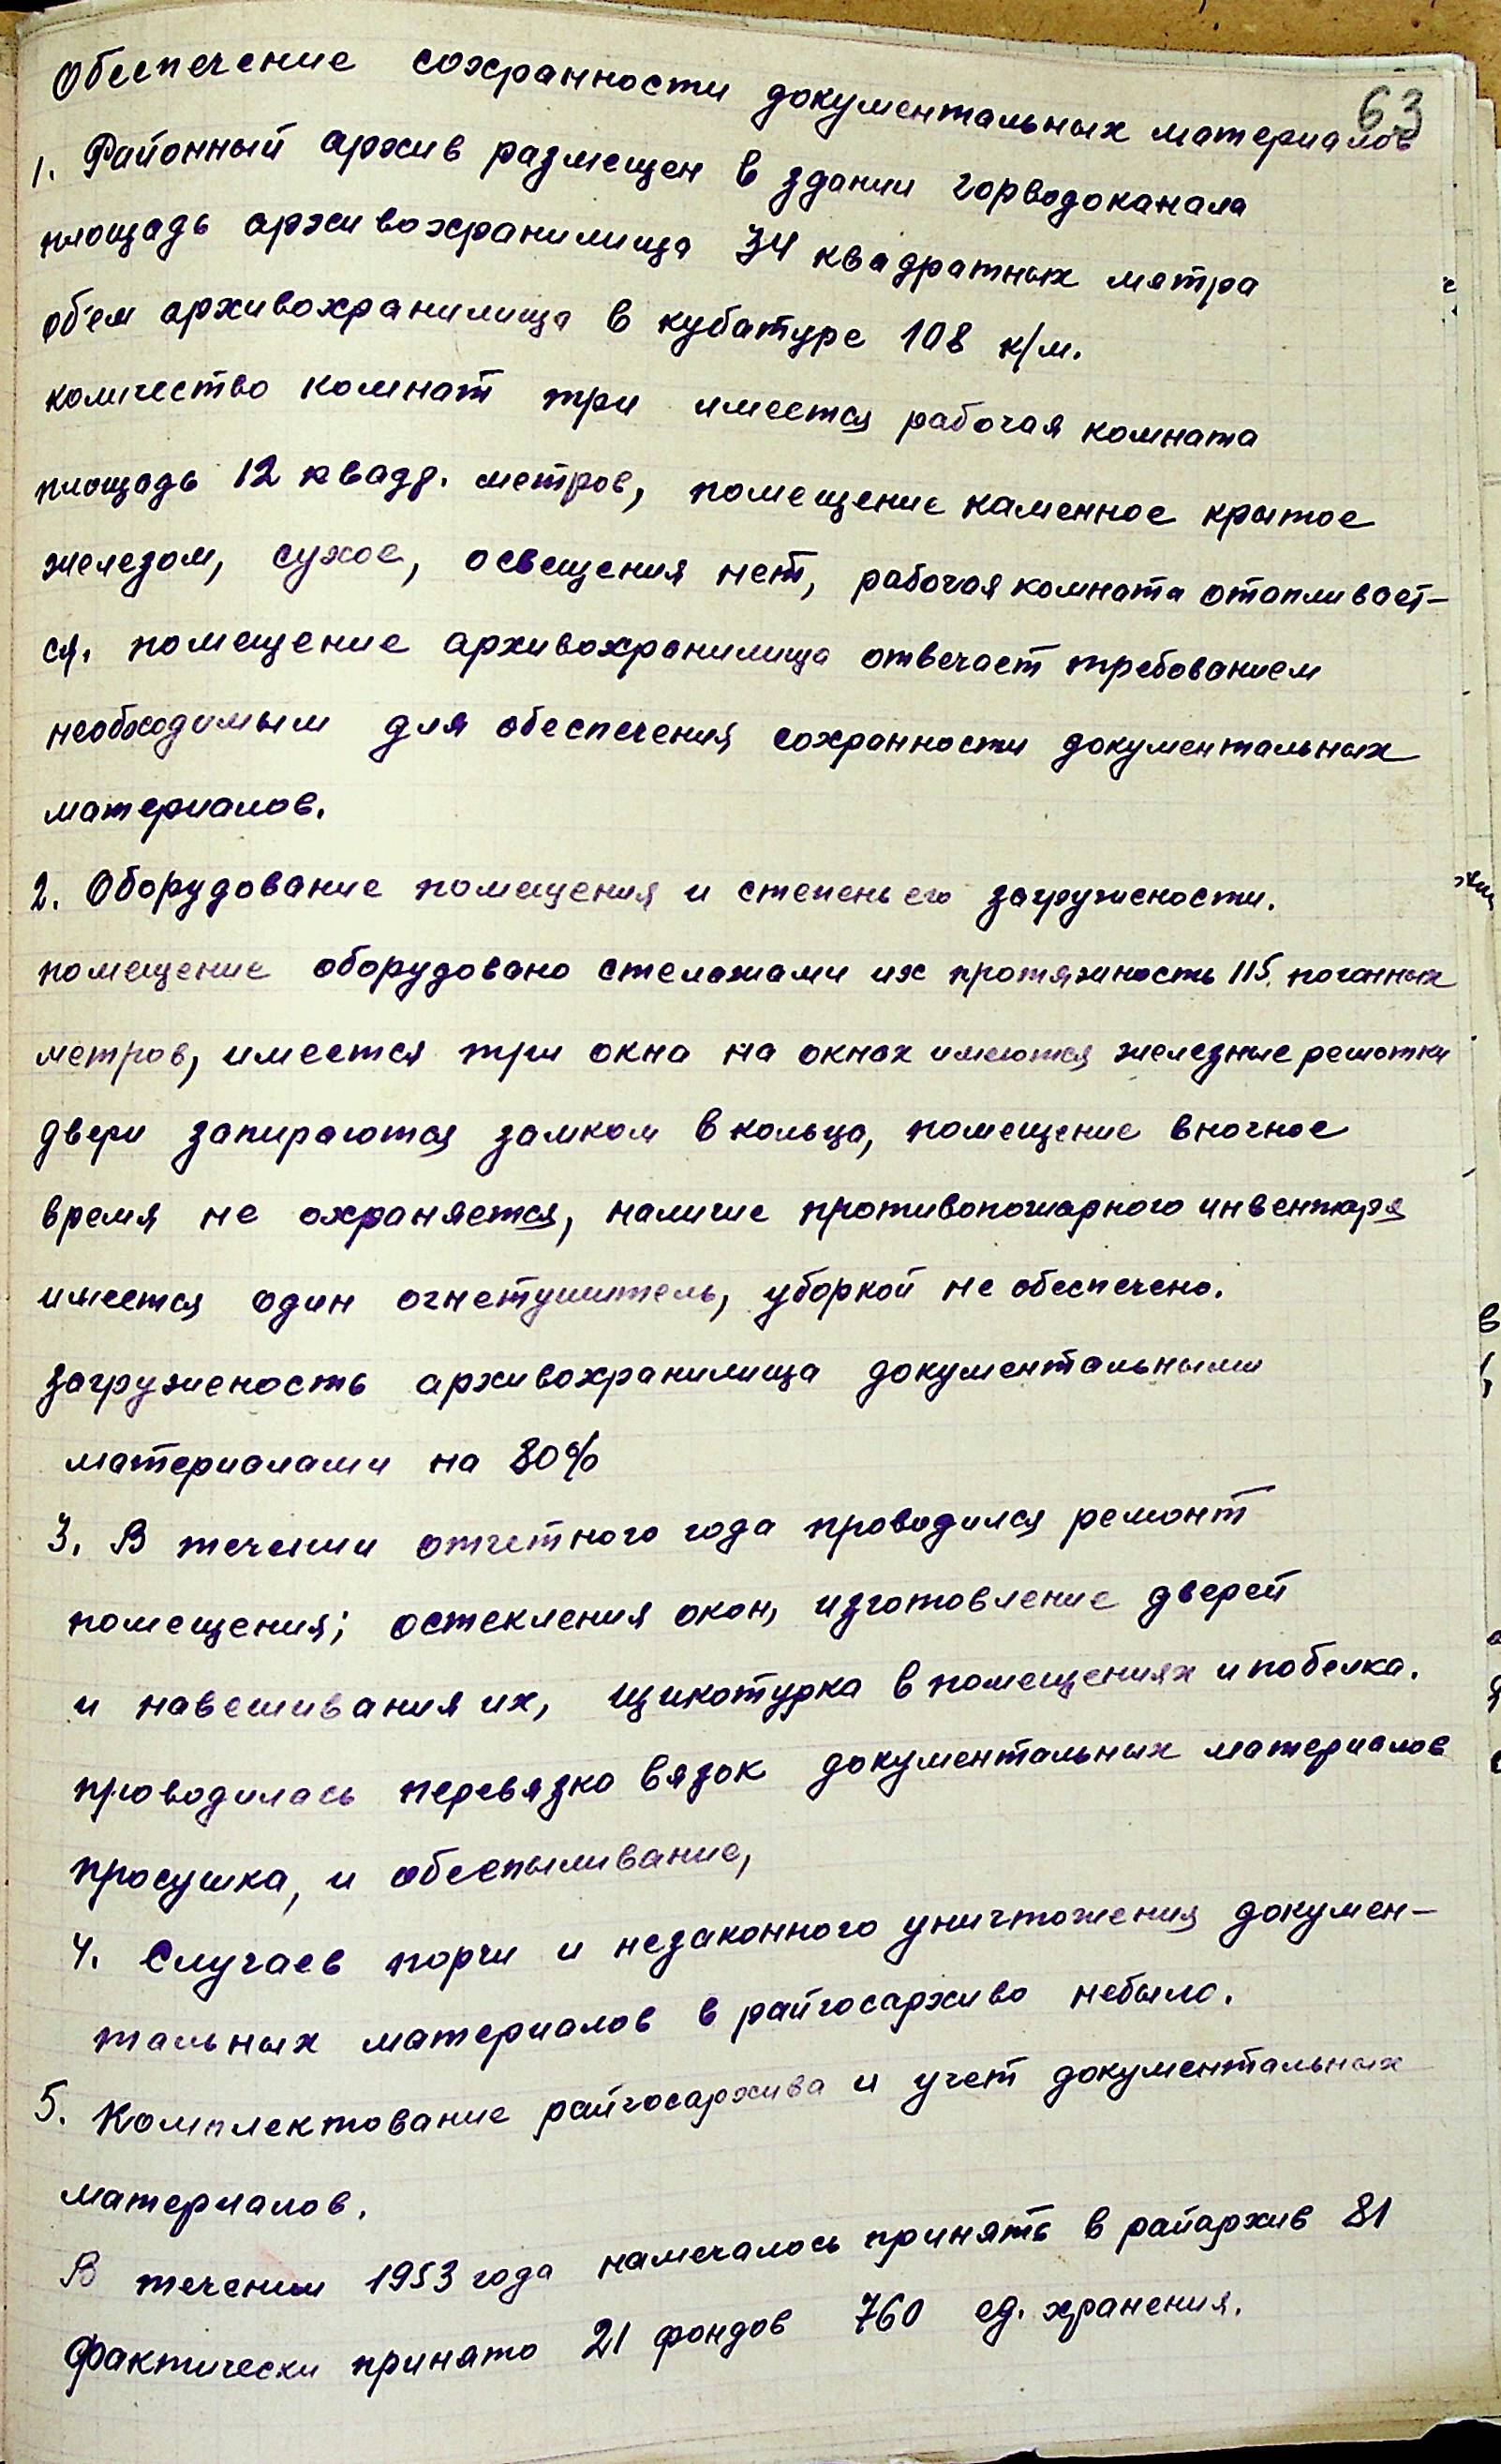 63
Обеспечение сохранности документальных материалов
1. Районный архив размещен в здании горводоканала
площадь архивохранилища 34 квадратных метра
об'ем архивохранилища в кубатуре 108 к/м.
количество комнат три имеется рабочая комната
площадь 12 квадр. метров, помещение каменное крытое
железом, сухое, освещения нет, рабочая комната отапливает-
ся. помещение архивохранилища отвечает требованием
необходимым для обеспечения сохранности документальных
материалов.
2. Оборудование помещения и степень его загружености.
помещение оборудовано стелажами их протяжность 115. погонных
метров, имеется три окна на окнах имеются железные решотки
двери запираются замком в кольца, помещение вночное
время не охраняется, наличие противопожарного инвентаря
имеется один огнетушитель, уборкой не обеспечено.
загруженость архивохранилища документальными
материалами на 80%
3. В течении отчетного года проводился ремонт
помещения; остекления окон, изготовление дверей
и навешивания их, щикотурка в помещениях и побелка.
проводилась перевязка вязок документальных материалов
просушка, и обеспыливание,
4. Случаев порчи и незаконного уничтожения докумен-
тальных материалов в райгосархиво небыло.
5. Комплектование райгосархива и учет документальных
материалов.
В течении 1953 года намечалось принять в райархив 81
Фактически принято 21 фондов 760 ед. хранения.